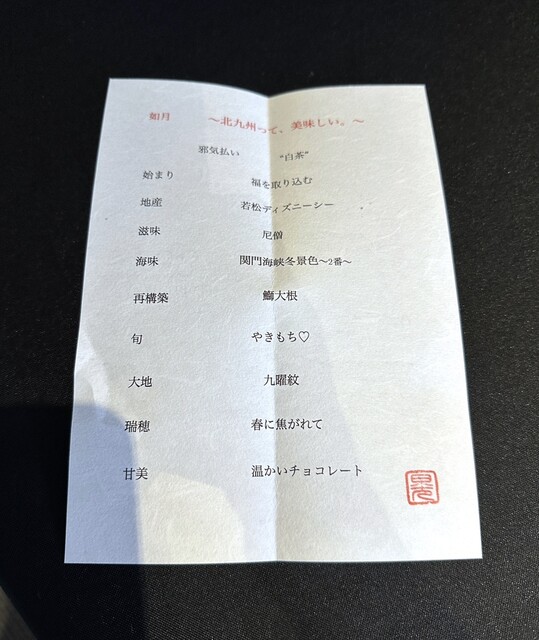 如月 ～北九州って、美味しい。～
邪気払い “白茶”
始まり 福を取り込む
地産 若松ディズニーシー
滋味 尼僧
海味 関門海峡冬景色～2番～
再構築 鰤大根
旬 やきもち♡
大地 九曜紋
瑞穂 春に焦がれて
甘美 温かいチョコレート